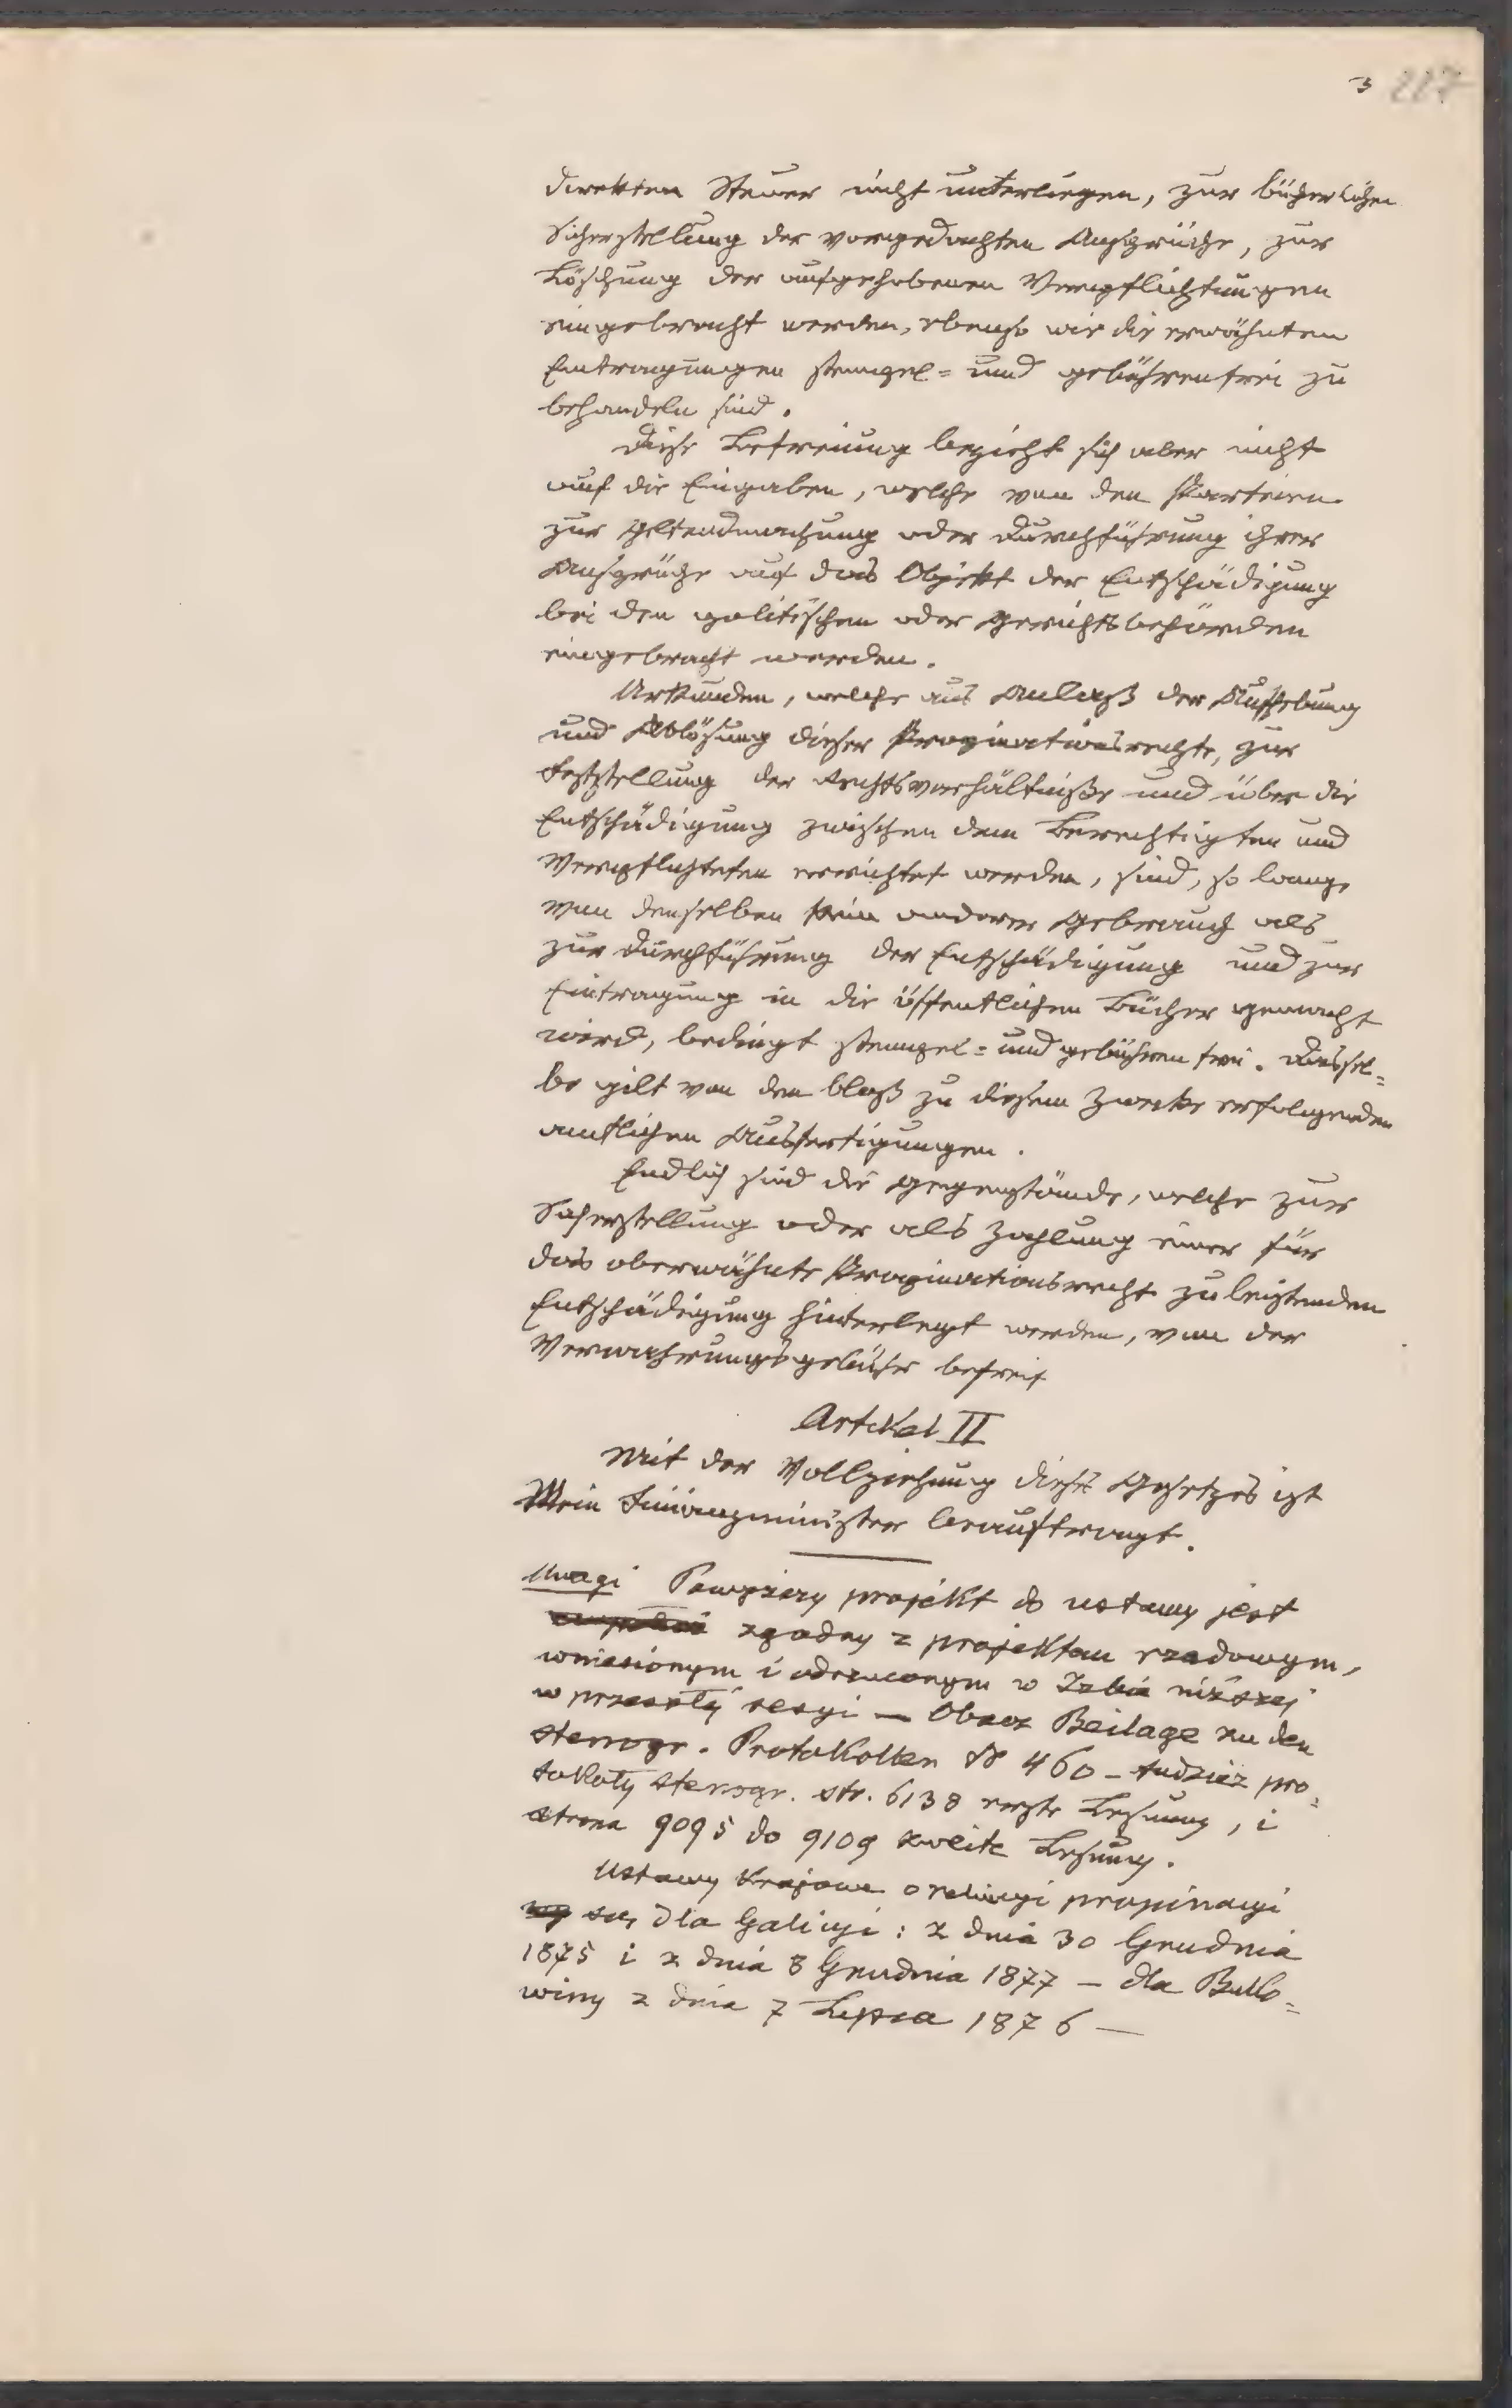 3 227
direkten Steuer nicht unterliegen, zur bücherlichen
Sicherstellung der vorgedachten Ansprüche, zur
Löschung der aufgehobenen Verpflichtungen
eingebracht werden, ebenso wie die erwähnten
Eintragungen stempel= und gebührenfrei zu
behandeln sind.
Diese Befreiung bezieht sich aber nicht
auf die Eingaben, welche von den Parteien
zur Geltendmachung oder Durchführung ihrer
Ansprüche auf das Objekt der Entschädigung
bei den politischen oder Gerichtsbehörden
eingebracht werden.
Urkunden, welche aus Anlaß der Aufhebung
und Ablösung dieser Propinationsrechte, zur
Feststellung der Rechtsverhältniße und über die
Entschädigung zwischen dem Berechtigten und
Verpflichteten errichtet werden, sind, so lange
von denselben kein anderer Gebrauch als
zur Durchführung der Entschädigung und zur
Eintragung in die öffentlichen Bücher gemacht
wird, bedingt stempel= und gebührenfrei. Dassel=
be gilt von den bloß zu diesem Zwecke erfolgenden
amtlichen Ausfertigungen.
Endlich sind die Gegenstände, welche zur
Sicherstellung oder als Zahlung einer für
das oberwähnte Propinationsrecht zu leistenden
Entschädigung hinterlegt werden, von der
Verwahrungsgebühr befreit
Artikel II
Mit der Vollziehung dieses Gesetzes ist
Mein Finanzminister beauftragt.
Uwagi Powyższy projekt do ustawy jest
zgodny z projektem rządowym,
wniesionym i odrzuconym w Izbie niższej
w przeszłej sesyi — Obacz Beilage zu den
stenogr. Protokollen № 460 – tudzież pro=
tokoły stenogr. str. 6138 erste Lesung, i
strona 9095 do 9109 zweite Lesung.
Ustawy krajowe o relucyi propinacyi
są, dla Galicyi: z dnia 30 Grudnia
1875 i z dnia 8 Grudnia 1877 — dla Buko=
winy z dnia 7 Lipca 1876 —